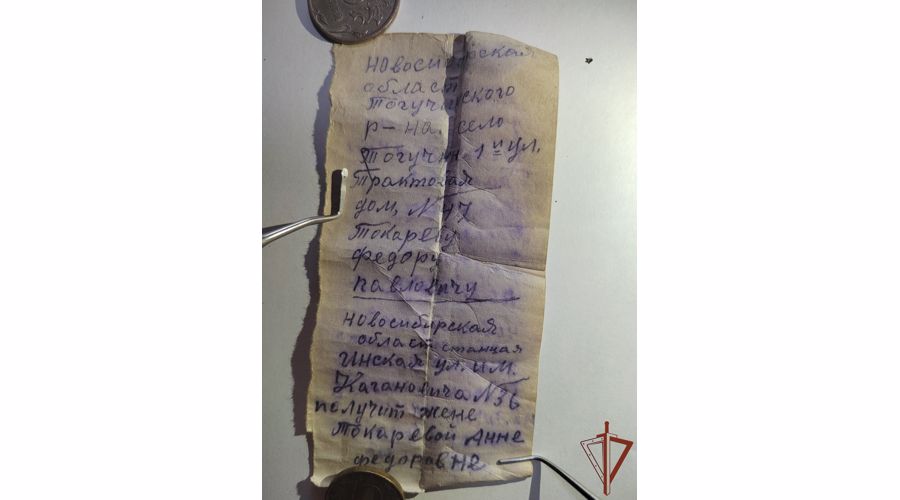 новосибирская
област
тогучинского
р-на село
тогучин 1й ул.
трактовая
дом, N 47
токареву
федору
павловичу
новосибирская
област станцая
инская ул. им.
Кагановича N36
получит жене
токаревой Анне
федоровне